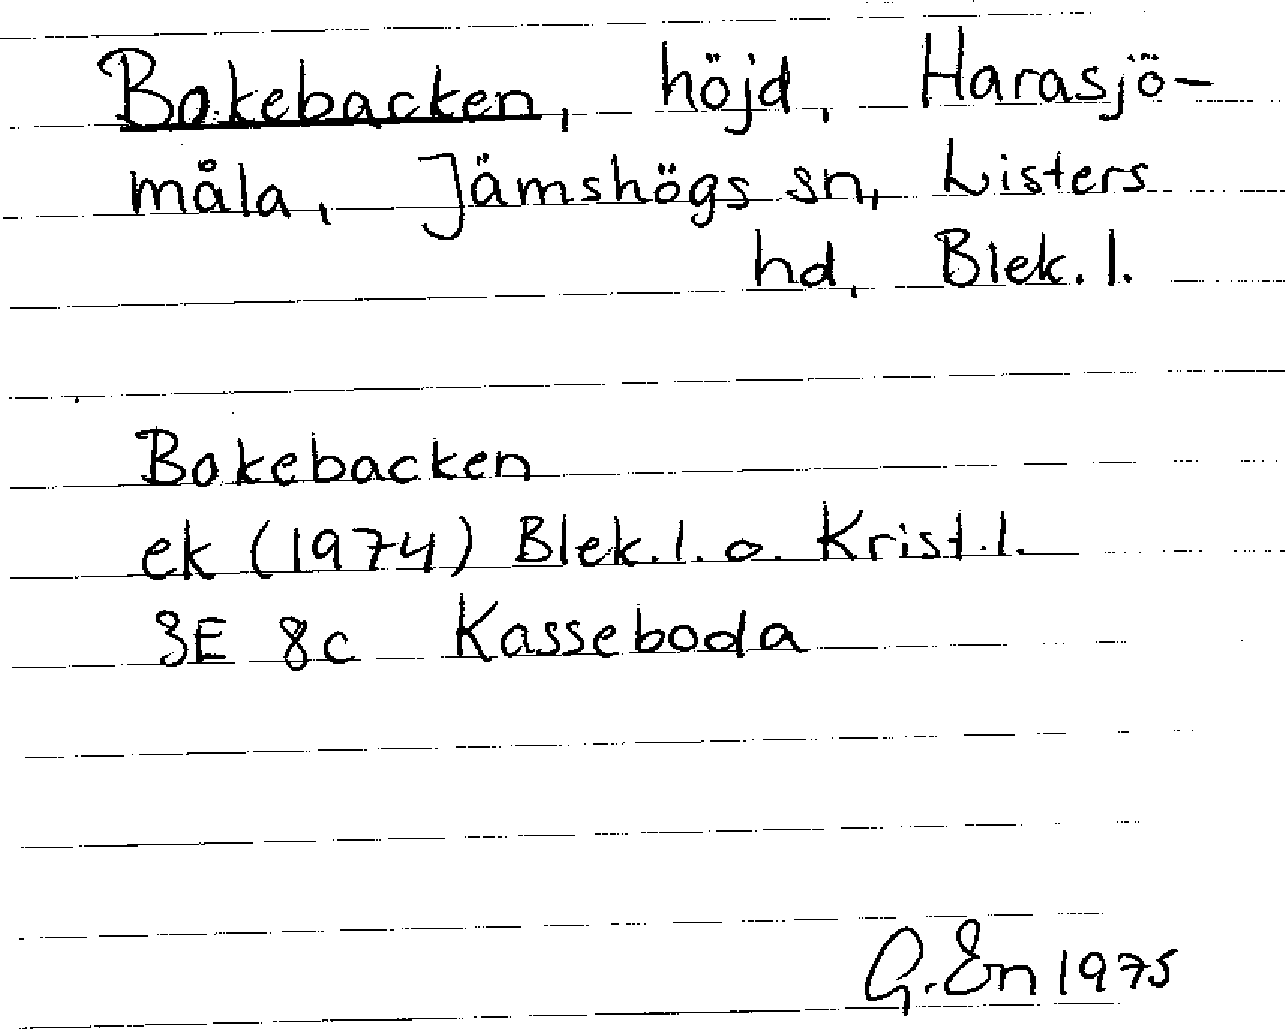 Bokebacken, höjd, Harasjö-
måla, Jämshögs sn, Listers
hd, Blek. l.
Bokebacken
ek (1974) Blek. l. o. Krist. l.
3E 8c Kasseboda
G. En 1975